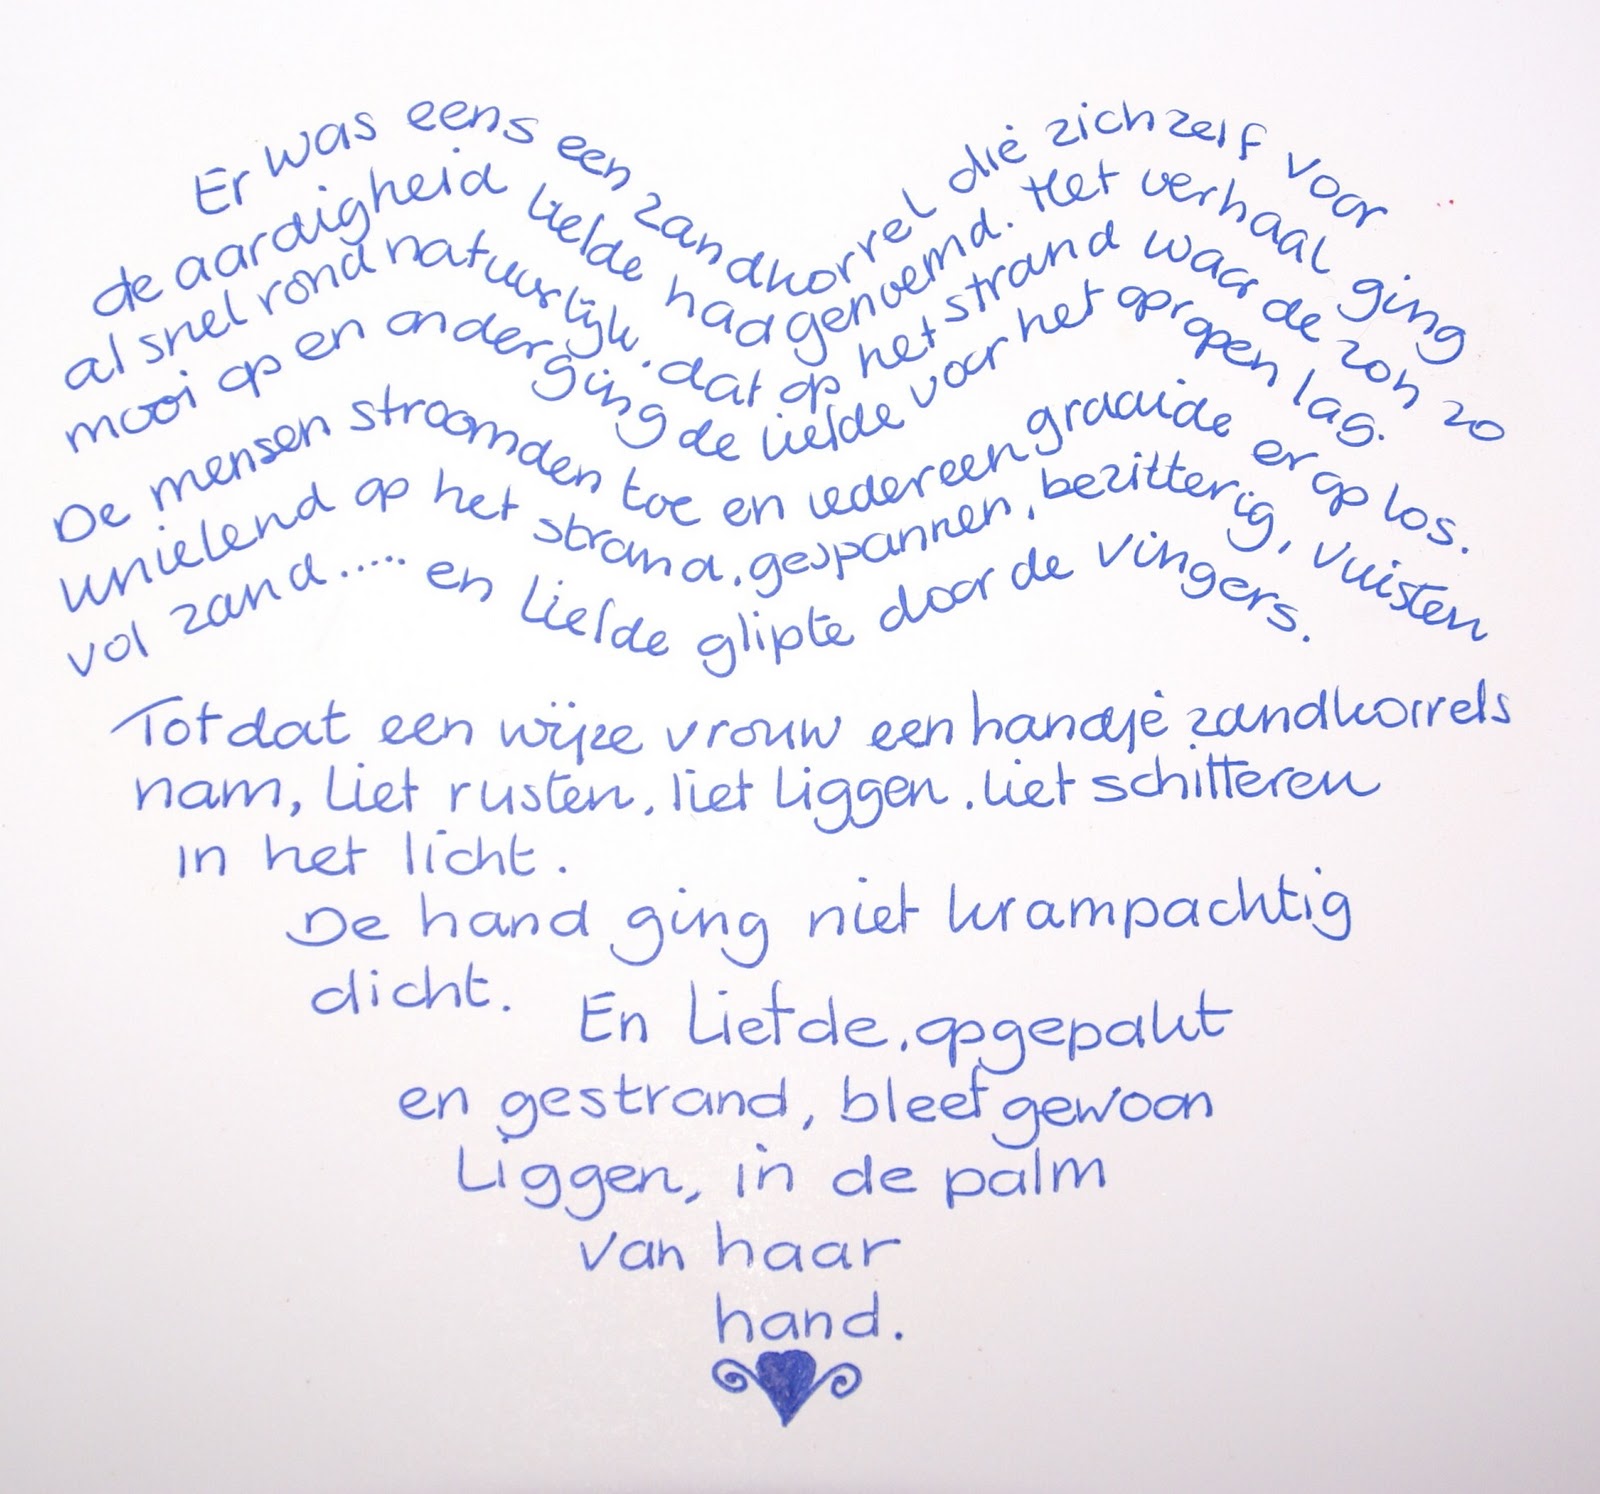 Er was eens een zandkorrel die zichzelf voor
de aardigheid liefde had genoemd. Het verhaal ging
al snel rond natuurlijk. dat op het strand waar de zon zo
mooi op en onderging de liefde voor het oprapen lag.
De mensen stroomden toe en iedereen graaide er op los.
Knielend op het strand, gespannen, bezitterig, vuisten
vol zand..... en Liefde glipte door de vingers.
Totdat een wijze vrouw een handje zandkorrels
nam, liet rusten, liet liggen, liet schitteren
in het licht.
De hand ging niet krampachtig
dicht. En Liefde, opgepakt
en gestrand, bleef gewoon
Liggen, in de palm
van haar
hand.